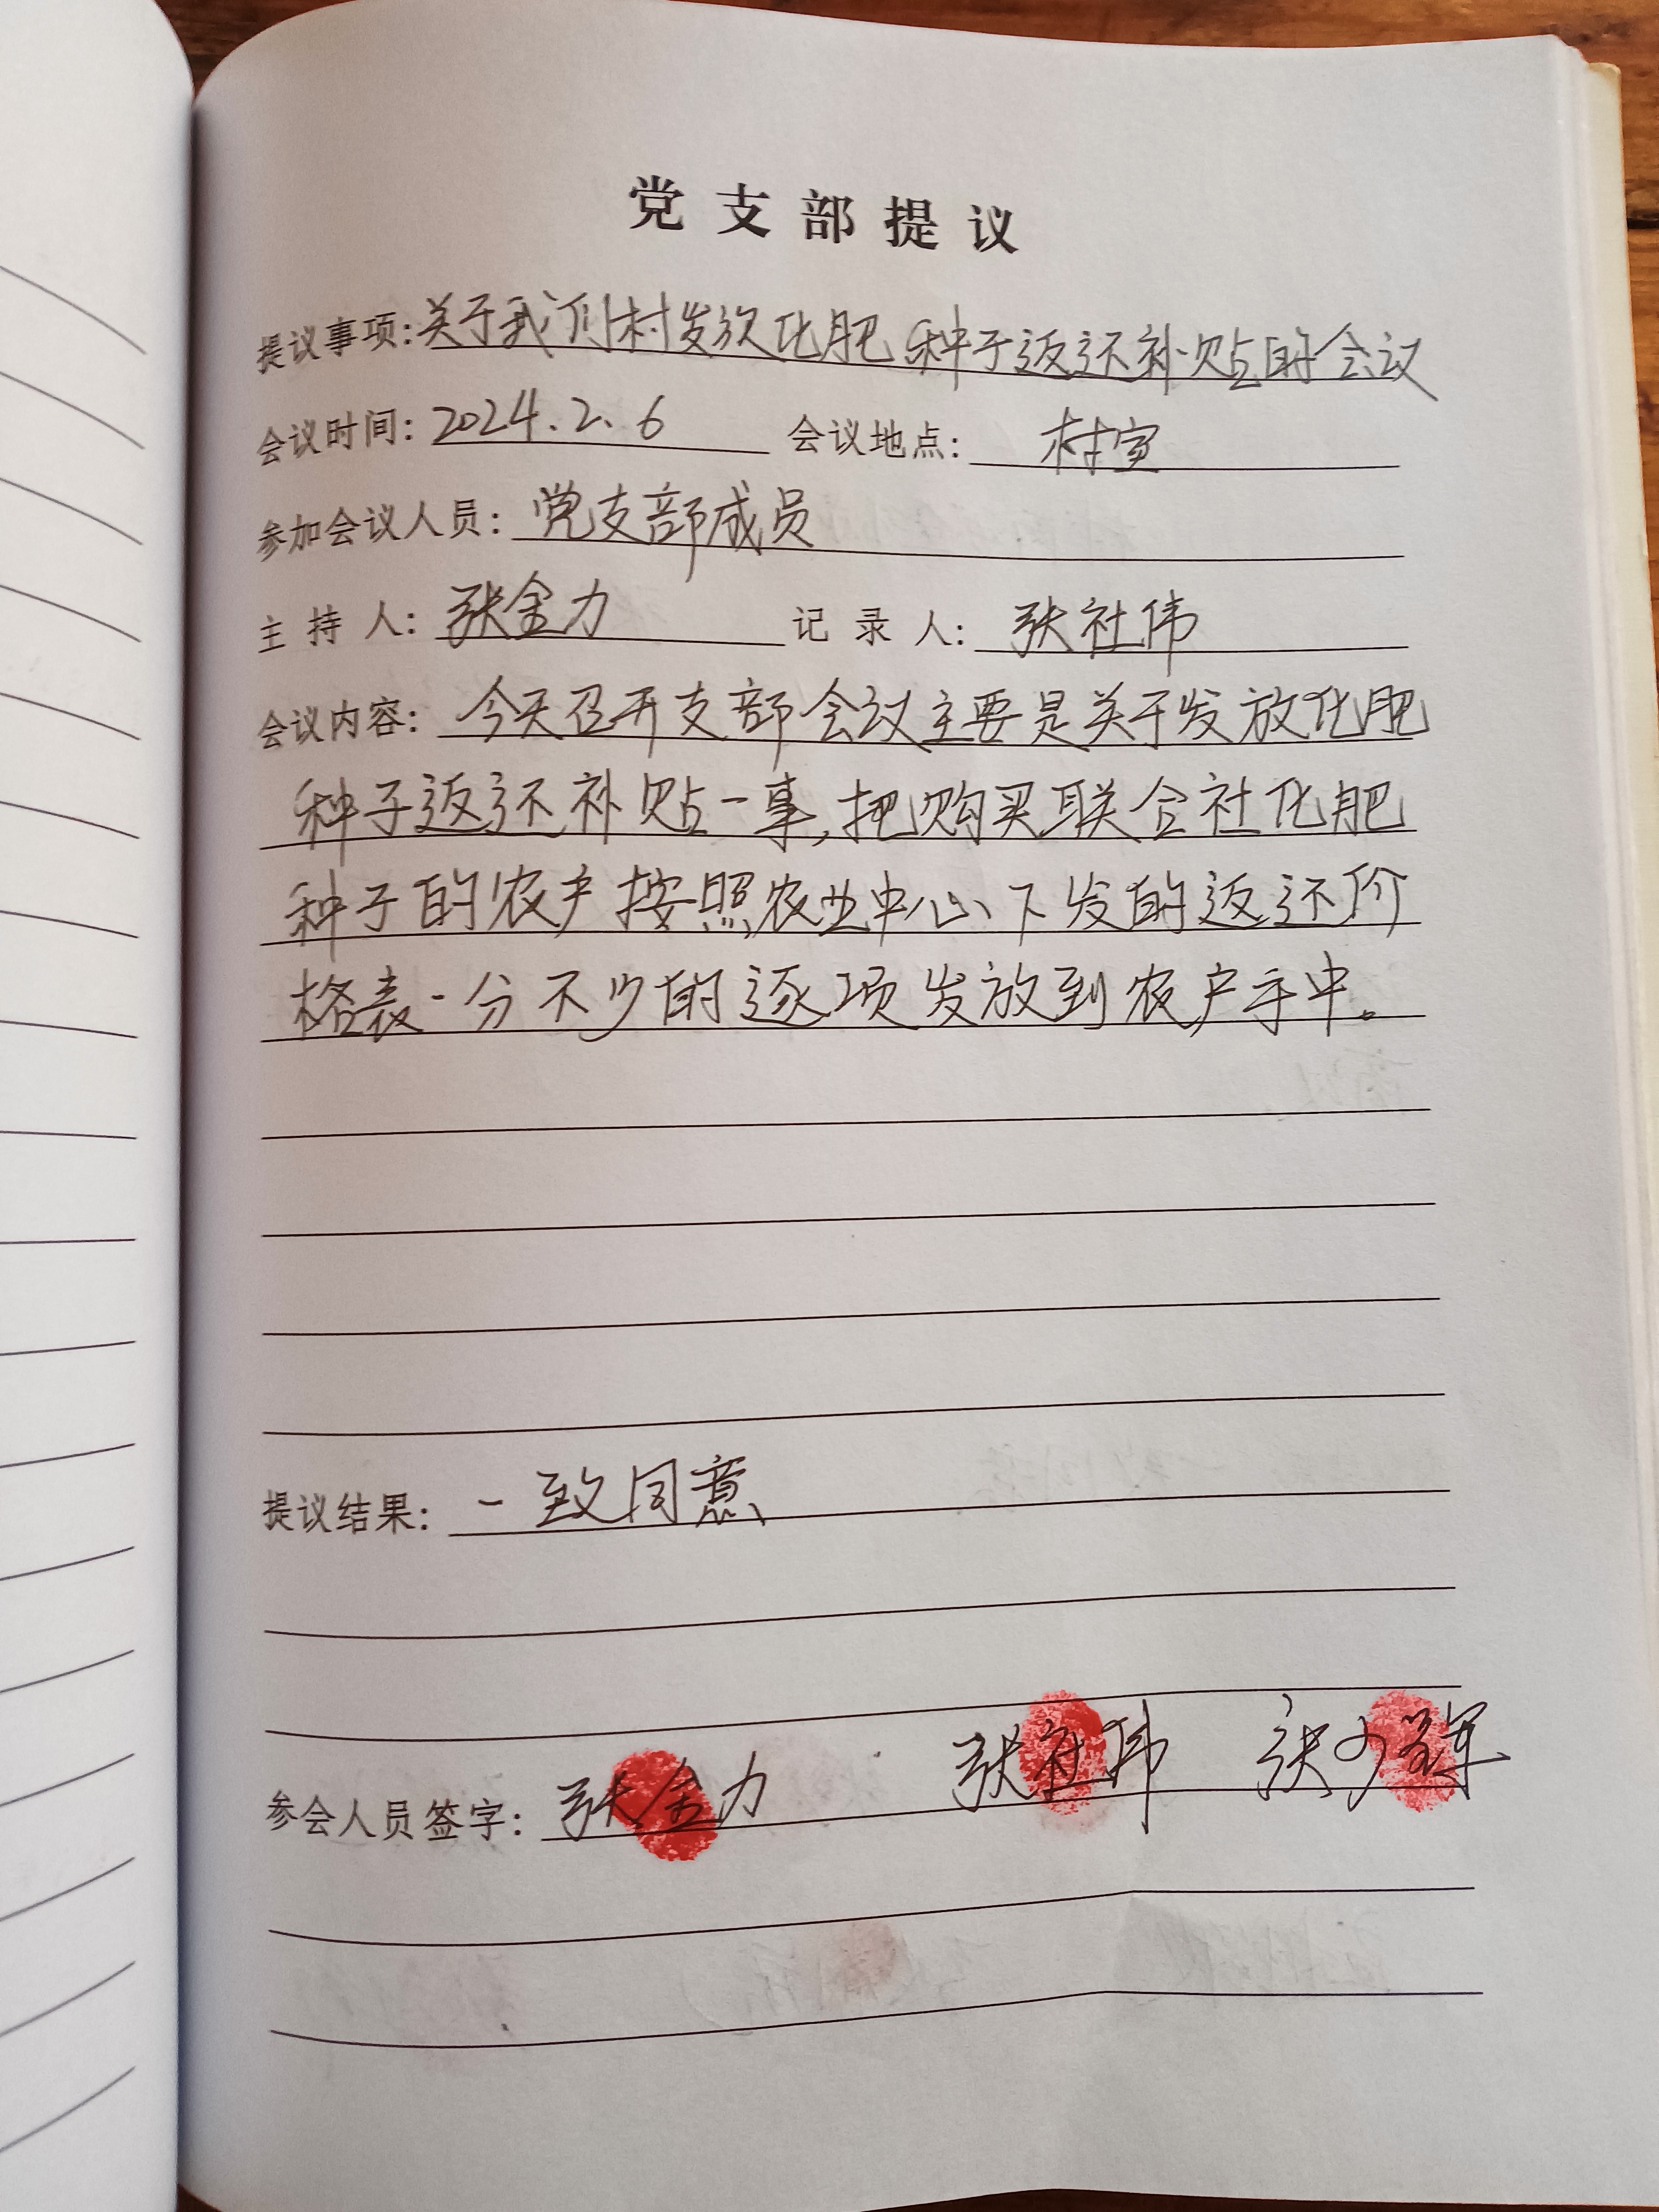 党支部提议
提议事项:关于我们村发放化肥种子返还补贴的会议
会议时间:2024.2.6 会议地点:村室
参加会议人员:党支部成员
主持人:张金力 记录人:张社伟
会议内容:今天召开支部会议主要是关于发放化肥
种子返还补贴一事,把购买联合社化肥
种子的农户按照农业中心下发的返还价
格表一分不少的逐项发放到农户手中。
提议结果:一致同意
参会人员签字:张金力 张社伟 张少军